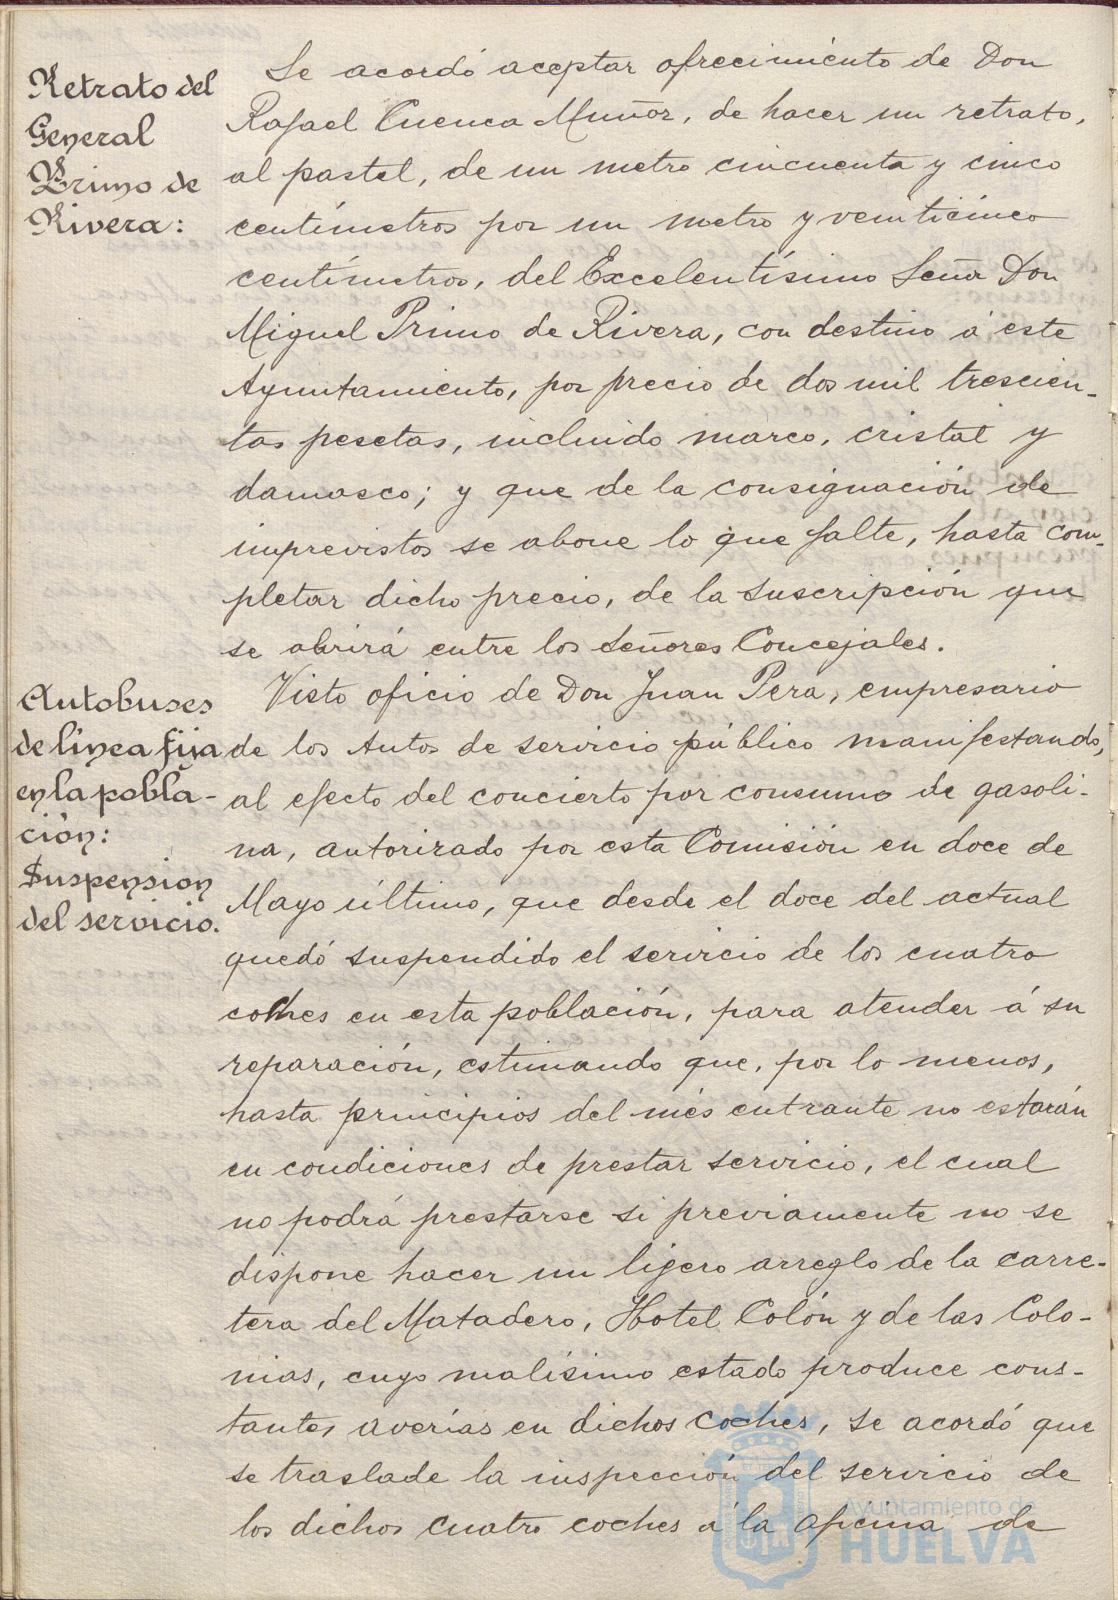 Retrato del
General
Primo de
Rivera:
Se acordó aceptar ofrecimiento de Don
Rafael Cuenca Muñoz, de hacer un retrato,
al pastel, de un metro cincuenta y cinco
centímetros por un metro y veinticinco
centímetros, del Excelentísimo Señor Don
Miguel Primo de Rivera, con destino á este
Ayuntamiento, por precio de dos mil trescien-
tas pesetas, incluido marco, cristal y
damasco; y que de la consignación de
imprevistos se abone lo que falte, hasta com-
pletar dicho precio, de la suscripción que
se abrirá entre los Señores Concejales.
Autobuses
de línea fija
en la pobla-
ción:
Suspension
del servicio.
Visto oficio de Don Juan Pera, empresario
de los Autos de servicio público manifestando,
al efecto del concierto por consumo de gasoli-
na, autorizado por esta Comisión en doce de
Mayo último, que desde el doce del actual
quedó suspendido el servicio de los cuatro
coches en esta población, para atender á su
reparación, estimando que, por lo menos,
hasta principios del més entrante no estarán
en condiciones de prestar servicio, el cual
no podrá prestarse si previamente no se
dispone hacer un ligero arreglo de la carre-
tera del Matadero, Hotel Colón y de las Colo-
nias, cuyo malísimo estado produce cons-
tantes averías en dichos coches, se acordó que
se traslade la inspección del servicio de
los dichos cuatro coches á la oficina de
Ayuntamiento de
HUELVA